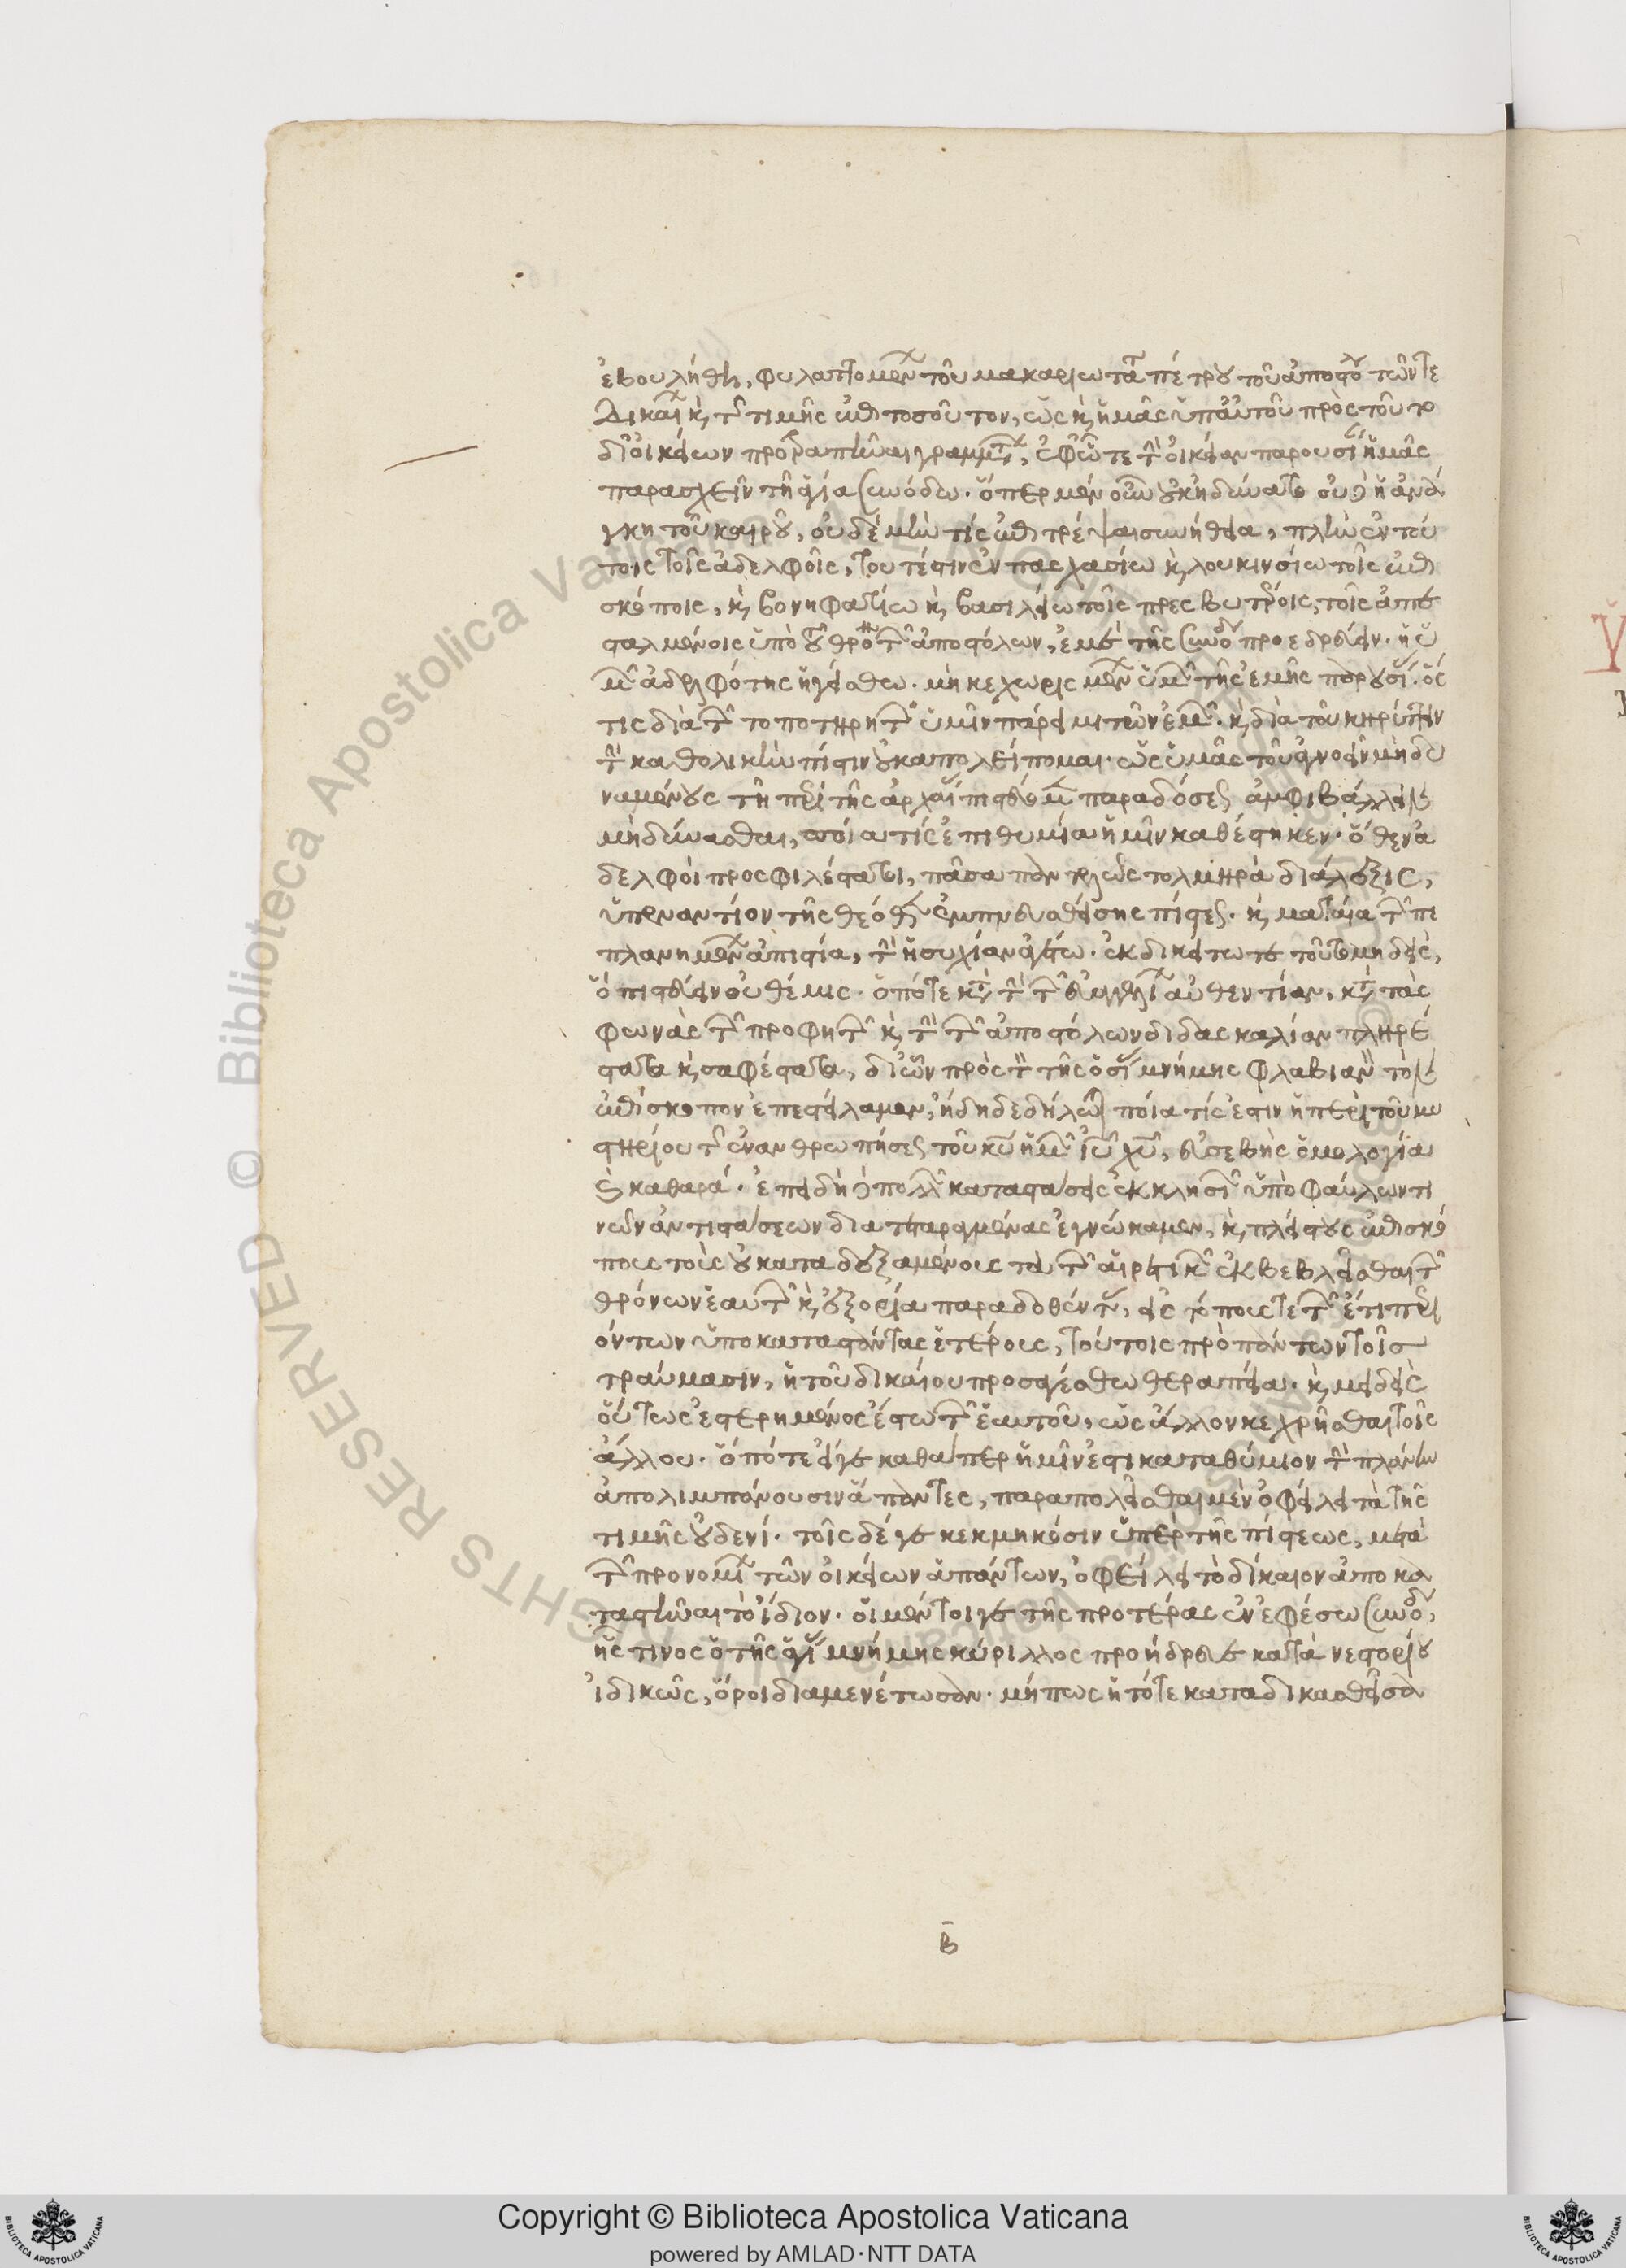 ἐβουλήθη, φυλαττομένων τοῦ μακαριωτάτου πέτρου τοῦ ἀποστόλου τῶν τε
δικαίων καὶ τῆς τιμῆς ἐπὶ τοσοῦτον, ὡς καὶ ἡμᾶς ὑπ' αὐτοῦ πρὸς τοῦτο
δι' οἰκείων προτραπῆναι γραμμάτων, ἐφ' ᾧ τε τὴν οἰκείαν παρουσίαν ἡμᾶς
παρασχεῖν τῇ ἁγίᾳ συνόδῳ. ὅπερ μὲν οὖν οὐκ ἠδύνατο οὔτε ἡ ἀνά
γκη τοῦ καιροῦ, οὐδὲ μὴν τίς ἐπιτρέψαι συνήθεια, πλὴν ἐν τού
τοις τοῖς ἀδελφοῖς, τουτέστιν ἐν πασχασίῳ καὶ λουκινσίῳ τοῖς ἐπι
σκόποις, καὶ βονηφατίῳ καὶ βασιλείῳ τοῖς πρεσβυτέροις, τοῖς ἀπε
σταλμένοις ὑπὸ τοῦ θρόνου τῶν ἀποστόλων, ἐμὲ τῆς συνόδου προεδρεύειν. ἡ ὑ
μῶν ἀδελφότης ἡγείσθω. μὴ κεχωρισμένων ὑμῶν τῆς ἐμῆς παρουσίας. ὅς
τις διὰ τῶν τοποτηρητῶν ὑμῖν πάρειμι τῶν ἐμῶν. καὶ διὰ τοῦ κηρύττειν
τὴν καθολικὴν πίστιν οὐκ ἀπολείπομαι. ὡς ὑμᾶς τοῦ ἀγνοεῖν μὴ δυ
ναμένους τῇ περὶ τῆς ἀρχαίας πιστεύομεν παραδόσεως ἀμφιβάλλειν
μὴ δύνασθαι, ποία τίς ἐπιθυμία ἡμῖν καθέστηκεν. ὅθεν ἀ
δελφοὶ προσφιλέστατοι, πᾶσα παντελῶς τολμηρὰ διάλεξις,
ὑπεναντίον τῆς θεόθεν ἐμπνευσθείσης πίστεως. καὶ ματαία τῶν πε
πλανημένων ἀπιστία, τὴν ἡσυχίαν ἀγέτω. ἐκδικείτω τε τοῦτο μηδείς,
ὃ πιστεύειν οὐ θέμις. ὁπότε κατὰ τὴν τῶν εὐαγγελίων αὐθεντίαν, κατὰ τὰς
φωνὰς τῶν προφητῶν καὶ τὴν τῶν ἀποστόλων διδασκαλίαν πληρέ
στατα καὶ σαφέστατα, δι' ὧν πρὸς τὸν τῆς ὁσίας μνήμης φλαβιανὸν τὸν
ἐπίσκοπον ἐπεστείλαμεν, ἤδη δεδήλωται ποία τίς ἐστιν ἡ περὶ τοῦ μυ
στηρίου τῆς ἐνανθρωπήσεως τοῦ κυ ἡμῶν ιυ χυ, εὐσεβὴς ὁμολογία
καὶ καθαρά. ἐπειδὴ δὲ πολλῶν καταστάσεις ἐκκλησιῶν ὑπὸ φαύλων τι
νῶν ἀντιστάσεων διαταραγμένας ἐγνώκαμεν, καὶ πλείστους ἐπισκό
πους τοὺς οὐ καταδεξαμένους τὰ τῶν αἱρετικῶν ἐκβεβλῆσθαι τῶν
θρόνων ἑαυτῶν καὶ ἐξορίᾳ παραδοθέντας, εἰς τόπους τε τῶν ἔτι περι
όντων ὑποκαταστάντας ἑτέρους, τούτοις πρὸ πάντων τοῖς
τραύμασιν, ἡ τοῦ δικαίου προσαγέσθω θεραπεία. καὶ μηδεὶς
οὕτως ἐστερημένος ἔστω τῶν ἑαυτοῦ, ὡς ἄλλον κεχρῆσθαι τοῖς
ἄλλου. ὁπότε εἴγε καθάπερ ἡμῖν ἐστι καταθύμιον τὴν πλάνην
ἀπολιμπάνουσιν ἅπαντες, παραπολεῖσθαι μὲν ὀφείλει τὰ τῆς
τιμῆς οὐδενί. τοῖς δέ γε κεκμηκόσιν ὑπὲρ τῆς πίστεως, μετὰ
τῶν προνομίων τῶν οἰκείων ἁπάντων, ὀφείλει τὸ δίκαιον ἀποκα
ταστῆναι τὸ ἴδιον. οἱ μέντοιγε τῆς προτέρας ἐν ἐφέσῳ συνόδου,
ἧς τινος ὁ τῆς ἁγίας μνήμης κύριλλος προήδρευε κατὰ νεστορίου
ἰδικῶς, ὅροι διαμενέτωσαν. μήπως ἡ τότε καταδικασθεῖσα
β
Copyright © Biblioteca Apostolica Vaticana
powered by AMLAD·NTT DATA